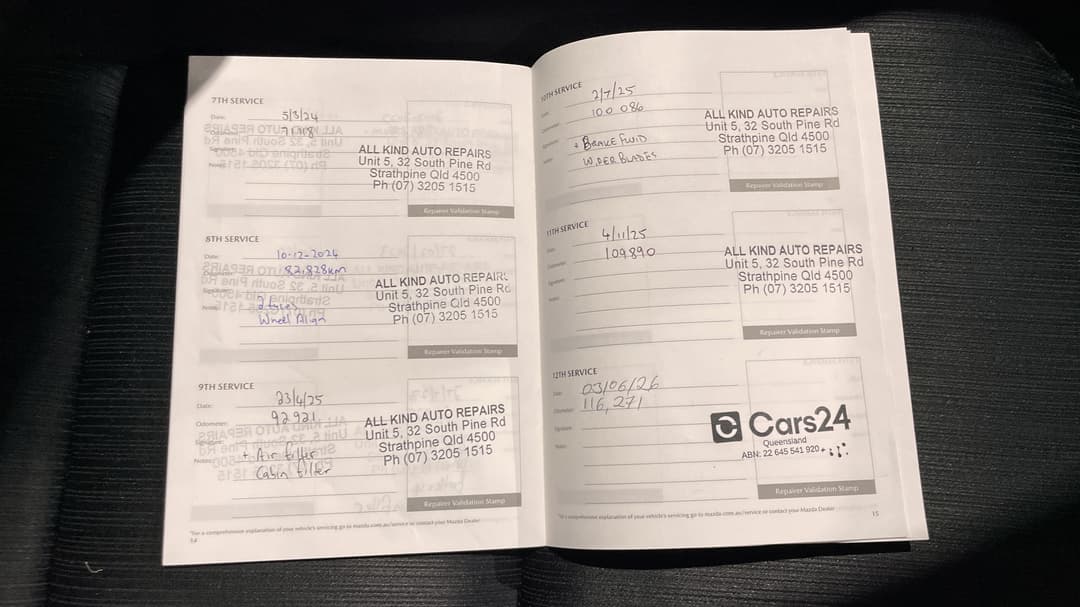 7TH SERVICE
Date: 5/3/24
71718
ALL KIND AUTO REPAIRS
Unit 5, 32 South Pine Rd
Strathpine Qld 4500
Ph (07) 3205 1515
Repairer Validation Stamp
8TH SERVICE
Date: 10-12-2024
82,828km
2 tyres
Wheel Align
ALL KIND AUTO REPAIRS
Unit 5, 32 South Pine Rd
Strathpine Qld 4500
Ph (07) 3205 1515
Repairer Validation Stamp
9TH SERVICE
Date: 23/4/25
Odometer: 92921
Notes: + Air filter
Cabin filter
ALL KIND AUTO REPAIRS
Unit 5, 32 South Pine Rd
Strathpine Qld 4500
Ph (07) 3205 1515
Repairer Validation Stamp
*For a comprehensive explanation of your vehicle's servicing go to mazda.com.au/service or contact your Mazda Dealer
14
10TH SERVICE
2/7/25
100 086
+ BRAKE FLUID
WIPER BLADES
ALL KIND AUTO REPAIRS
Unit 5, 32 South Pine Rd
Strathpine Qld 4500
Ph (07) 3205 1515
Repairer Validation Stamp
11TH SERVICE
4/11/25
109890
ALL KIND AUTO REPAIRS
Unit 5, 32 South Pine Rd
Strathpine Qld 4500
Ph (07) 3205 1515
Repairer Validation Stamp
12TH SERVICE
Date: 03/06/26
Odometer: 116,271
Signature:
Notes:
Cars24
Queensland
ABN: 22 645 541 920
Repairer Validation Stamp
*For a comprehensive explanation of your vehicle's servicing go to mazda.com.au/service or contact your Mazda Dealer
15